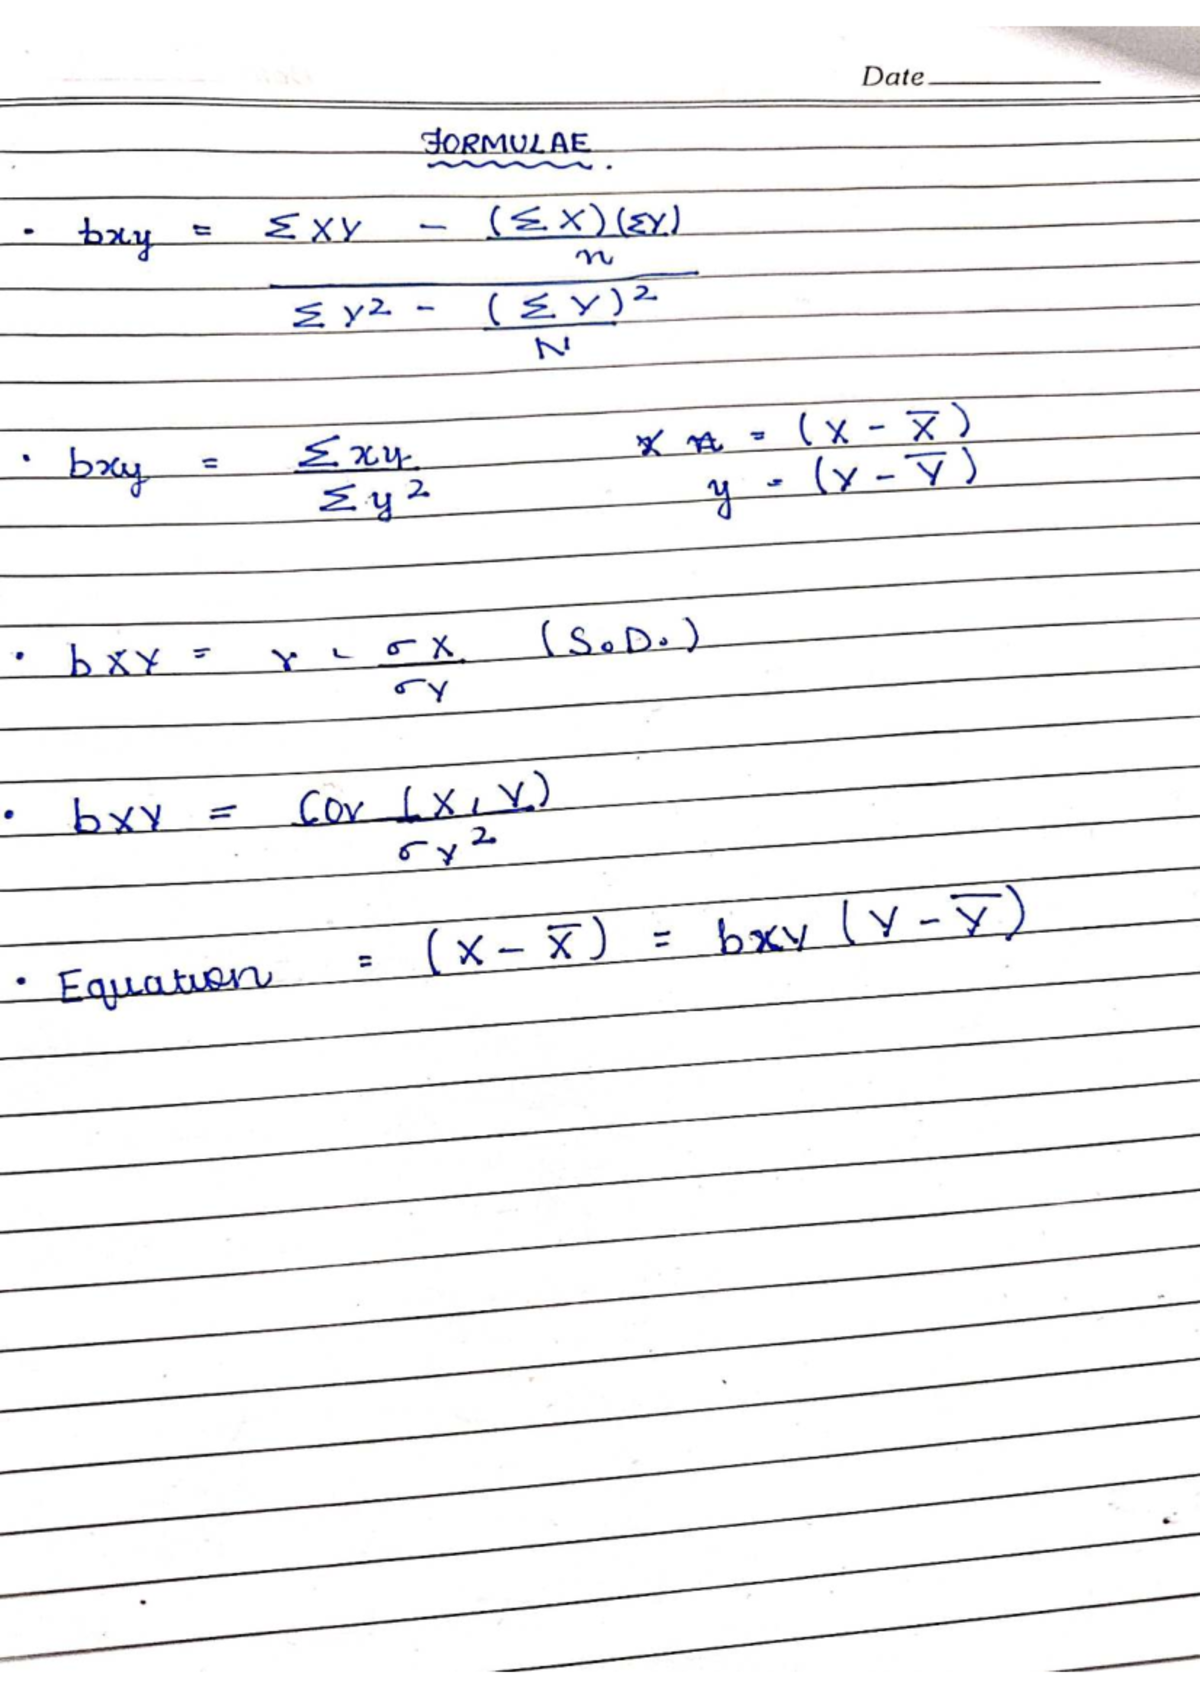 Date
FORMULAE.
• bxy = ΣXY - (ΣX)(ΣY)
n
ΣY2 - (ΣY)2
N
• bxy = Σxy x = (X - X̅)
Σy2 y = (Y - Y̅)
• bXY = r . σX (S.D.)
σY
• bXY = Cov (X, Y)
σY2
• Equation = (X - X̅) = bxy (Y - Y̅)